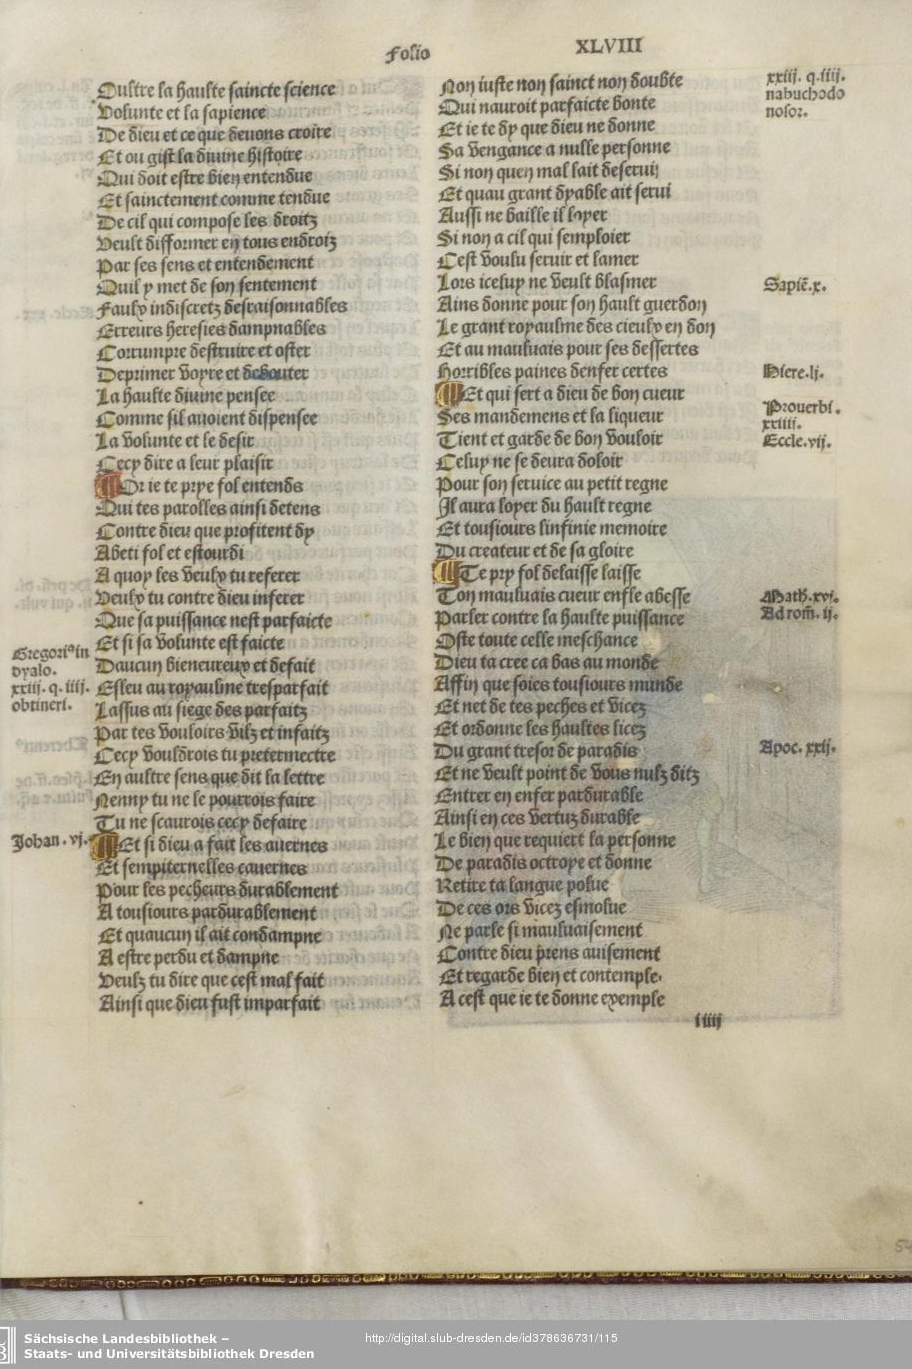 Folio XLVIII
Oultre la haulte saincte science
Volunte et la sapience
De dieu et ce que deuons croire
Et ou gist la diuine histoire
Qui doit estre bien entendue
Et sainctement comme tendue
De cil qui compose les droitz
Veult difformer en tous endroiz
Par ses sens et entendement
Quil y met de son sentement
Faulx indiscretz desraisonnables
Erreurs heresies dampnables
Corrumpre destruire et oster
Deprimer voyre et debouter
La haulte diuine pensee
Comme sil auoient dispensee
La volunte et le desir
Cecy dire a leur plaisir
Or ie te prye fol entends
Qui tes parolles ainsi detens
Contre dieu que profitent dy
Abeti fol et estourdi
A quoy les veulx tu referer
Veulx tu contre dieu inferer
Que sa puissance nest parfaicte
Et si sa volunte est faicte
Daucun bieneureux et defait
Esleu au royaulme tresparfait
Lassus au siege des parfaitz
Par tes vouloirs vilz et infaitz
Cecy vouldrois tu pretermectre
En aultre sens que dit la lettre
Nenny tu ne le pourrois faire
Tu ne scaurois cecy defaire
Et si dieu a fait les auernes
Et sempiternelles cauernes
Pour les pecheurs durablement
A tousiours pardurablement
Et quaucun il ait condampne
A estre perdu et dampne
Veulz tu dire que cest mal fait
Ainsi que dieu fust imparfait
Gregoriꝰ in
dyalo.
xxiij. q. iiij.
obtineri.
Johan. vj.
Non iuste non sainct non doubte
Qui nauroit parfaicte bonte
Et ie te dy que dieu ne donne
Sa vengance a nulle personne
Si non quen mal lait deserui
Et quau grant dyable ait serui
Aussi ne baille il loyer
Si non a cil qui semploier
Cest voulu seruir et lamer
Lors iceluy ne veult blasmer
Ains donne pour son hault guerdon
Le grant royaulme des cieulx en don
Et au mauluais pour ses dessertes
Horribles paines denfer certes
Et qui sert a dieu de bon cueur
Ses mandemens et sa liqueur
Tient et garde de bon vouloir
Celuy ne se deura doloir
Pour son seruice au petit regne
Il aura loyer du hault regne
Et tousiours linfinie memoire
Du createur et de sa gloire
Te pry fol delaisse laisse
Ton mauluais cueur enfle abesse
Parler contre la haulte puissance
Oste toute celle meschance
Dieu ta cree ca bas au monde
Affin que soies tousiours munde
Et net de tes peches et vicez
Et ordonne les haultes licez
Du grant tresor de paradis
Et ne veult point de vous nulz ditz
Entrer en enfer pardurable
Ainsi en ces vertuz durable
Le bien que requiert la personne
De paradis octroye et donne
Retire ta langue polue
De ces ors vicez esmolue
Ne parle si mauluaisement
Contre dieu prens auisement
Et regarde bien et contemple.
A cest que ie te donne exemple
iiij
xxiij. q. iiij.
nabuchodo
nosor.
Sapiē. x.
Hiere. lj.
Prouerbi.
xxiiii.
Eccle. vij.
Math. xvj.
Ad rom̄. ij.
Apoc. xxij.
Sächsische Landesbibliothek –
Staats- und Universitätsbibliothek Dresden
http://digital.slub-dresden.de/id378636731/115